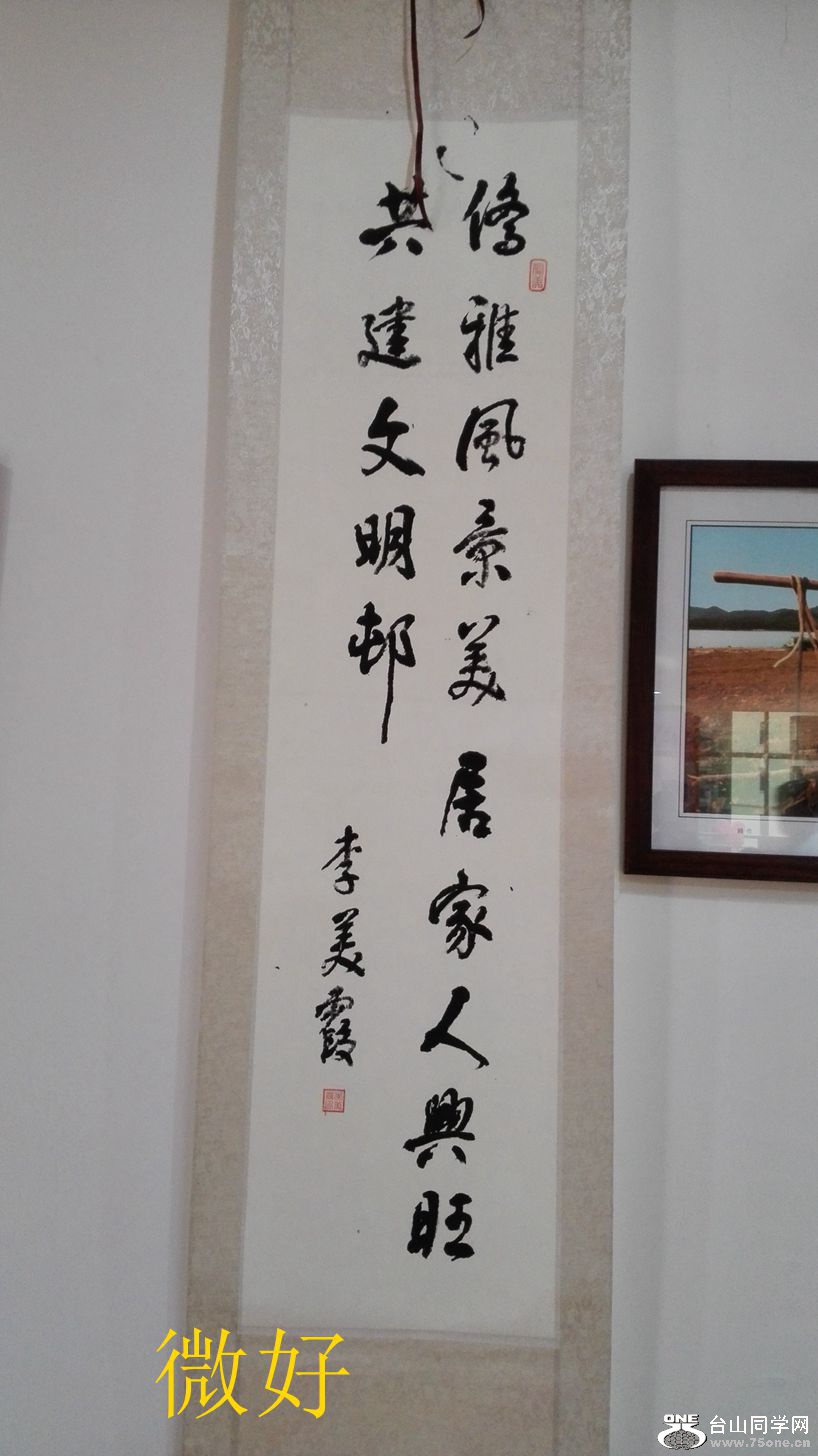 僑雅風景美居家人興旺
共建文明邨
李美霞
微好
ONE 台山同学网
www.75one.cn